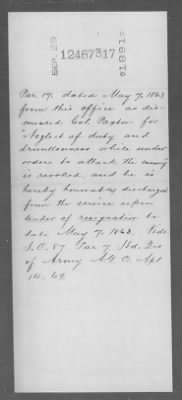 SEP. 29
12467317
1891
Par. 17, dated May 7, 1863
from this office as dis-
missed Col. for
"Neglect of duty and
drunkenness while under
orders to attack the enemy
is revoked, and he is
hereby honorably discharged
from the service upon
tender of resignation to
date May 7, 1863. Vide
S.O. 87 Par 7. Hd. Qrs
of Army A.G.O. Apl